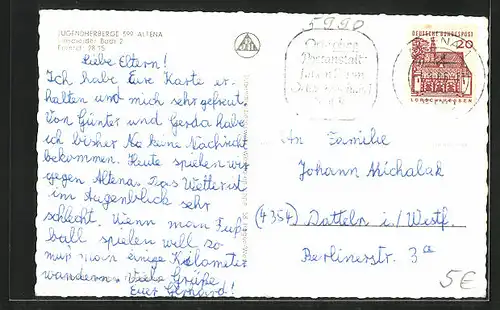 5990
JUGENDHERBERGE 599 ALTENA
DEUTSCHE BUNDESPOST
20
LORSCH/HESSEN
Liebe Eltern!
Ich habe Eure Karte er-
halten und mich sehr gefreut.
Von Günter und Gerda habe
ich bisher keine Nachricht
bekommen. Heute spielen wir
gegen Altena. Das Wetter ist
im Augenblick sehr
schlecht. Wenn man Fuß-
ball spielen will so
muß man einige Kilometer
wandern. Viele Grüße
Euer Gerhard!
An Familie
Johann Michalak
(4354) Datteln i./Westf.
Berlinerstr. 3a
5€